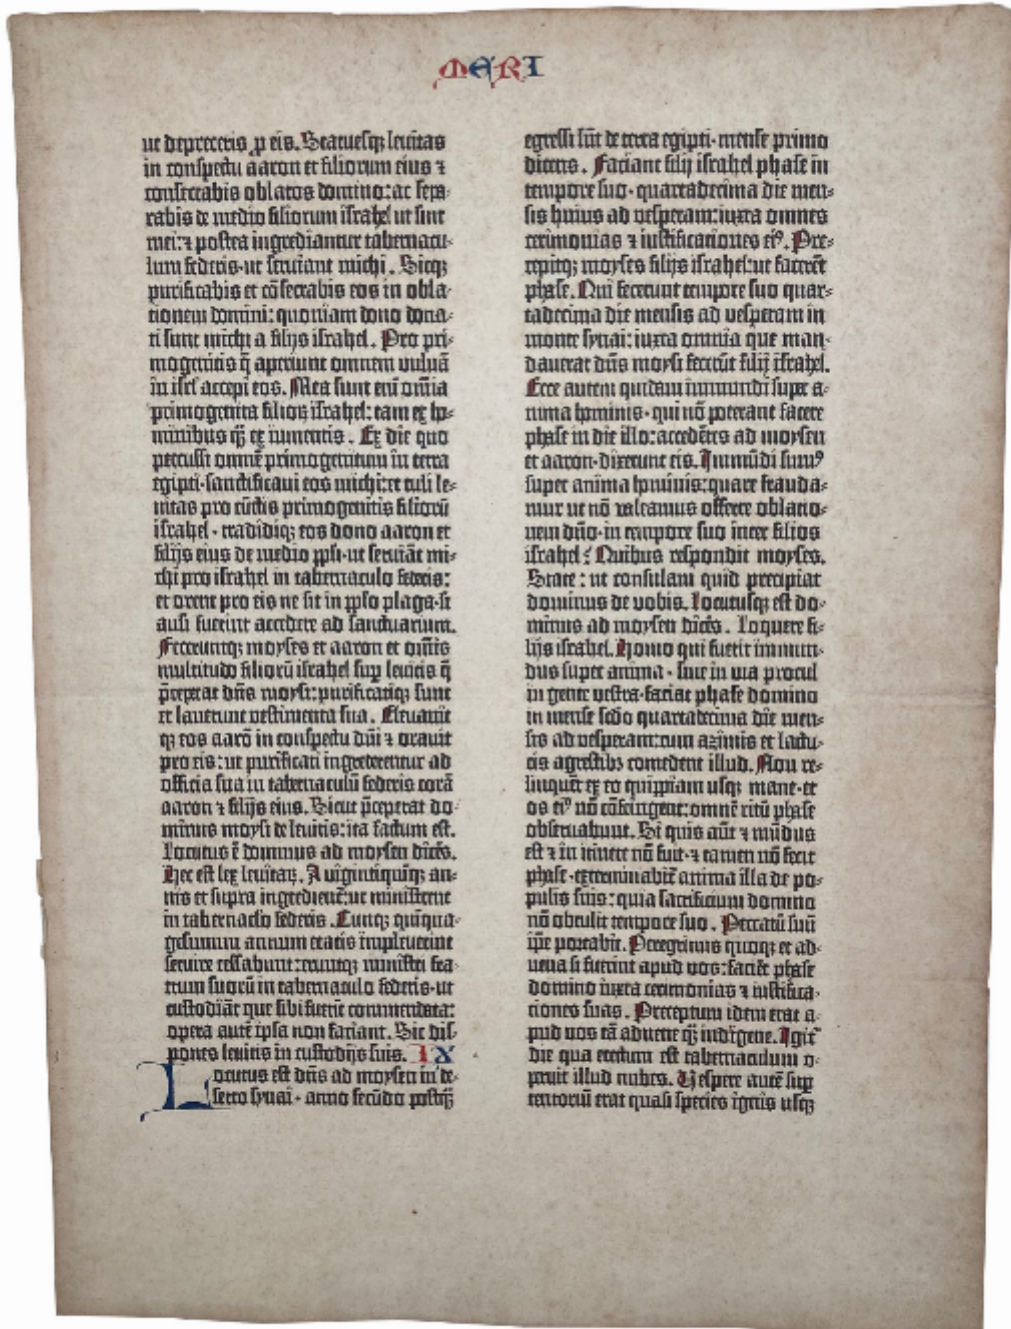 MERI
ut depreceris ꝓ eis. Statuesqꝫ leuitas
in conspectu aaron et filiorum eius ⁊
consecrabis oblatos domino: ac sepa-
rabis de medio filiorum israhel ut sint
mei: ⁊ postea ingrediantur tabernacu-
lum federis · ut seruiant michi. Sicqꝫ
purificabis et cōsecrabis eos in obla-
tionem domini: quoniam dono dona-
ti sunt michi a filijs israhel. Pro pri-
mogenitis q̄ aperiunt omnem vuluā
in isrl accepi eos. Mea sunt em̄ om̄ia
primogenita filioꝝ israhel: tam ex ho-
minibus q̄ꝫ ex iumentis. Ex die quo
percussi omnē primogenitum in terra
egipti · sanctificaui eos michi: et tuli le-
uitas pro cūctis primogenitis filiorū
israhel · tradidiqꝫ eos dono aaron et
filijs eius de medio pp̄li · ut seruiāt mi-
chi pro israhel in tabernaculo federis:
et orent pro eis ne sit in pp̄lo plaga · si
ausi fuerint accedere ad sanctuarium.
Feceruntqꝫ moyses et aaron et om̄is
multitudo filiorū israhel sup̱ leuitis q̄
p̄ceperat dn̄s moysi: purificatiqꝫ sunt
et lauerunt vestimenta sua. Eleuauit
qꝫ eos aarō in conspectu dn̄i ⁊ orauit
pro eis: ut purificati ingrederentur ad
officia sua in tabernaculū federis corā
aaron ⁊ filijs eius. Sicut p̄ceperat do-
minus moysi de leuitis: ita factum est.
Locutus ē dominus ad moysen dicēs.
Hec est lex leuitaꝝ. A vigintiquinqꝫ an-
nis et supra ingredient̄ · ut ministrent
in tabernac̄lo federis. Cunqꝫ quinqua-
gesimum annum etatis impleuerint
seruire cessabunt: eruntqꝫ ministri fra-
trum suorū in tabernaculo federis · ut
custodiāt que sibi fuerīt commendata:
opera autē ipsa non faciant. Sic dis-
pones leuitis in custodijs suis. IX
Locutus est dn̄s ad moysen in de-
serto synai · anno secūdo postq̄ꝫ
egressi sūt de terra egipti · mense primo
dicens. Faciant filij israhel phase in
tempore suo · quartadecima die men-
sis huius ad vesperam: iuxta omnes
cerimonias ⁊ iustificationes eiꝰ. Pre-
cepitqꝫ moyses filijs israhel: ut facerēt
phase. Qui fecerunt tempore suo quar-
tadecima die mensis ad vesperam in
monte synai: iuxta omnia que man-
dauerat dn̄s moysi fecerūt filij israhel.
Ecce autem quidam immundi super a-
nima hominis · qui nō poterant facere
phase in die illo: accedētes ad moysen
et aaron · dixerunt eis. Inmūdi sumꝰ
super anima hominis: quare frauda-
mur ut nō valeamus offerre oblatio-
nem dn̄o · in tempore suo inter filios
israhel? Quibus respondit moyses.
State: ut consulam quid precipiat
dominus de vobis. Locutusqꝫ est do-
minus ad moysen dicēs. Loquere fi-
lijs israhel. Homo qui fuerit immun-
dus super anima · siue in via procul
in gente vestra · faciat phase domino
in mense secdo quartadecima die men-
sis ad vesperam: cum azimis et lactu-
cis agrestibꝫ comedent illud. Non re-
linquēt ex eo quippiam usqꝫ mane · et
os eiꝰ nō cōfringent: omnē ritū phase
obseruabunt. Si quis aūt ⁊ mūdus
est ⁊ in itinere nō fuit · ⁊ tamen nō fecit
phase · exterminabit̄ anima illa de po-
pulis suis: quia sacrificium domino
nō obtulit tempore suo. Peccatū suū
ip̄e portabit. Peregrinus quoqꝫ et ad-
uena si fuerint apud vos: faciēt phase
domino iuxta cerimonias ⁊ iustifica-
tiones suas. Preceptum idem erat a-
pud vos tā aduene q̄ꝫ indigene. Igit̄
die qua erectum est tabernaculum o-
peruit illud nubes. Uespere autē sup̱
tentoriū erat quasi species ignis usqꝫ